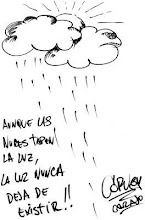 AUNQUE LAS
NUBES TAPEN
LA LUZ,
LA LUZ NUNCA
DEJA DE
EXISTIR!!